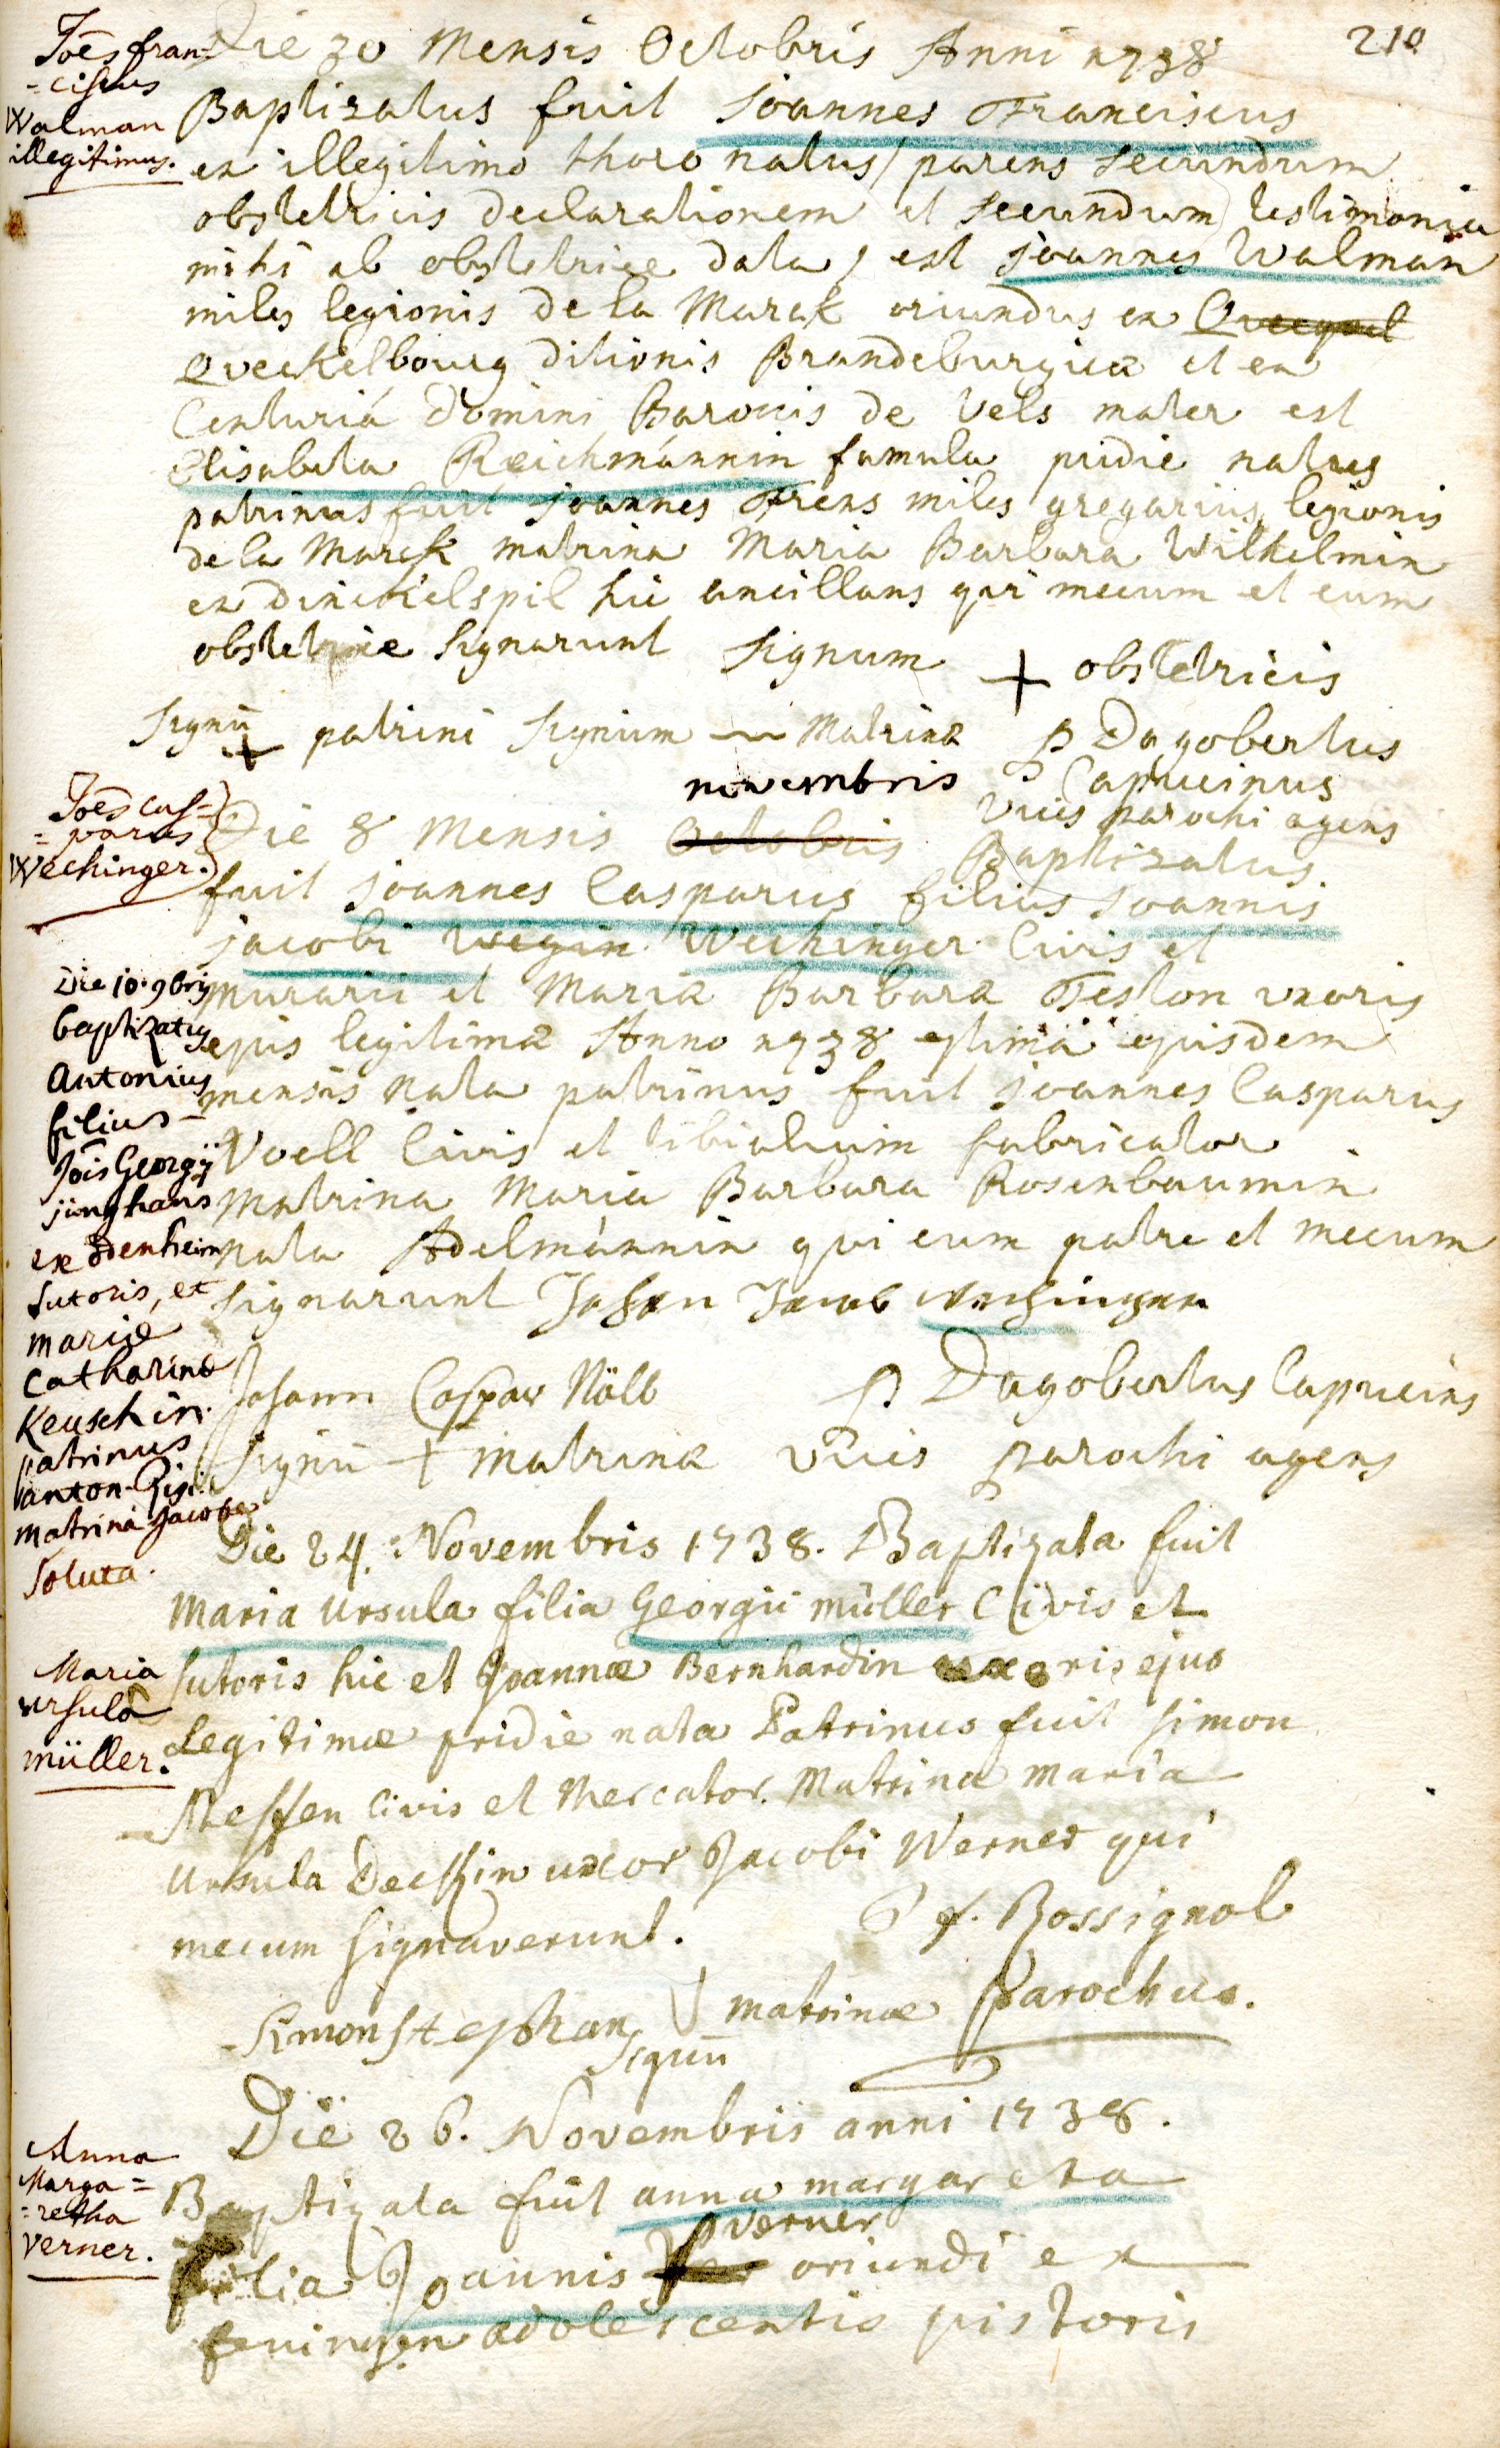 210
Joes fran-
-ciscus
Walman
illegitimus.
Die 30 Mensis Octobris Anni 1738
Baptizatus fuit Joannes Franciscus
ex illegitimo thoro natus / parens secundum
obstetricis declarationem et secundum testimonia
mihi ab obstetrice data / est Joannes Walman
miles legionis de la Marck oriundus ex
Qveckelbourg ditionis Brandeburgica et ex
Centuriá Domini Baronis de Vels mater est
Elisabeta Reichmánnin famula pridie natus
patrinus fuit Joannes Frens miles gregarius legionis
de la Marck matrina Maria Barbara Wilhelmin
ex Dinckelspil hic ancillans qui mecum et cum
obstetrice signarunt signum + obstetricis
Signū + patrini signum ~ Matrinæ P Dagobertus
Capucinus
vices parochi agens
Joes cas-
-parus
Wechinger.
novembris
Die 8 Mensis Octobris Baptizatus
fuit Joannes Casparus filius Joannis
jacobi Wegin Wechinger Civis et
murarii et Mariæ Barbaræ Teston uxoris
ejus legitimæ Anno 1738 7tima ejusdem
mensis nata patrinus fuit Joannes Casparus
Noell Civis et tibialium fabricator
Matrina Maria Barbara Rosenbaumin
nata Adelmánnin qui cum patre et mecum
signarunt Johan Jacob Wechinger
Johann Caspar Nöll P Dagobertus Capucins
Signū + Matrinæ vices parochi agens
Die 10. 9bris
baptizatus
Antonius
filius
Jois Georgÿ
junghans
ex Odenheim
sutoris, et
Mariæ
Catharinæ
Keuschin.
patrinus
anton
matrina Jacobe
soluta.
Die 24. Novembris 1738. Baptizata fuit
Maria Ursula filia Georgii müller Civis et
sutoris hic et Joannæ Bernhardin uxoris ejus
Legitimæ pridie nata Patrinus fuit Simon
Steffen Civis et Mercator. Matrina Maria
Ursula Deckin uxor Jacobi Werner qui
mecum signaverunt. P f. Rossignol
Parochus.
Simon Stephan Signū matrinæ
Maria
ursula
müller.
Die 26. Novembris anni 1738.
Baptizata fuit anna margareta
Verner
filia Joannis oriundi ex
adolescentis pistoris
Anna
Marga=
=retha
Verner.